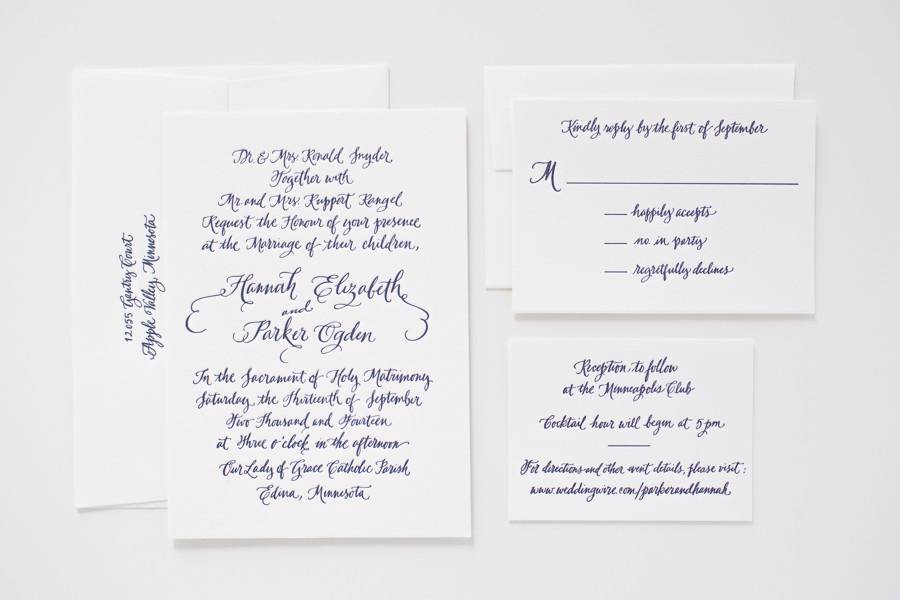 12055 Gentry Court
Apple Valley, Minnesota
Dr. & Mrs. Ronald Snyder
Together with
Mr. and Mrs. Ruppert Rangel
Request the Honour of your presence
at the Marriage of their children,
Hannah Elizabeth
and
Parker Ogden
In the Sacrament of Holy Matrimony
Saturday, the Thirteenth of September
Two Thousand and Fourteen
at Three o'clock in the afternoon
Our Lady of Grace Catholic Parish
Edina, Minnesota
Kindly reply by the first of September
M
happily accepts
no. in party
regretfully declines
Reception to follow
at the Minneapolis Club
Cocktail hour will begin at 5 pm
For directions and other event details, please visit:
www.weddingwire.com/parkerandhannah